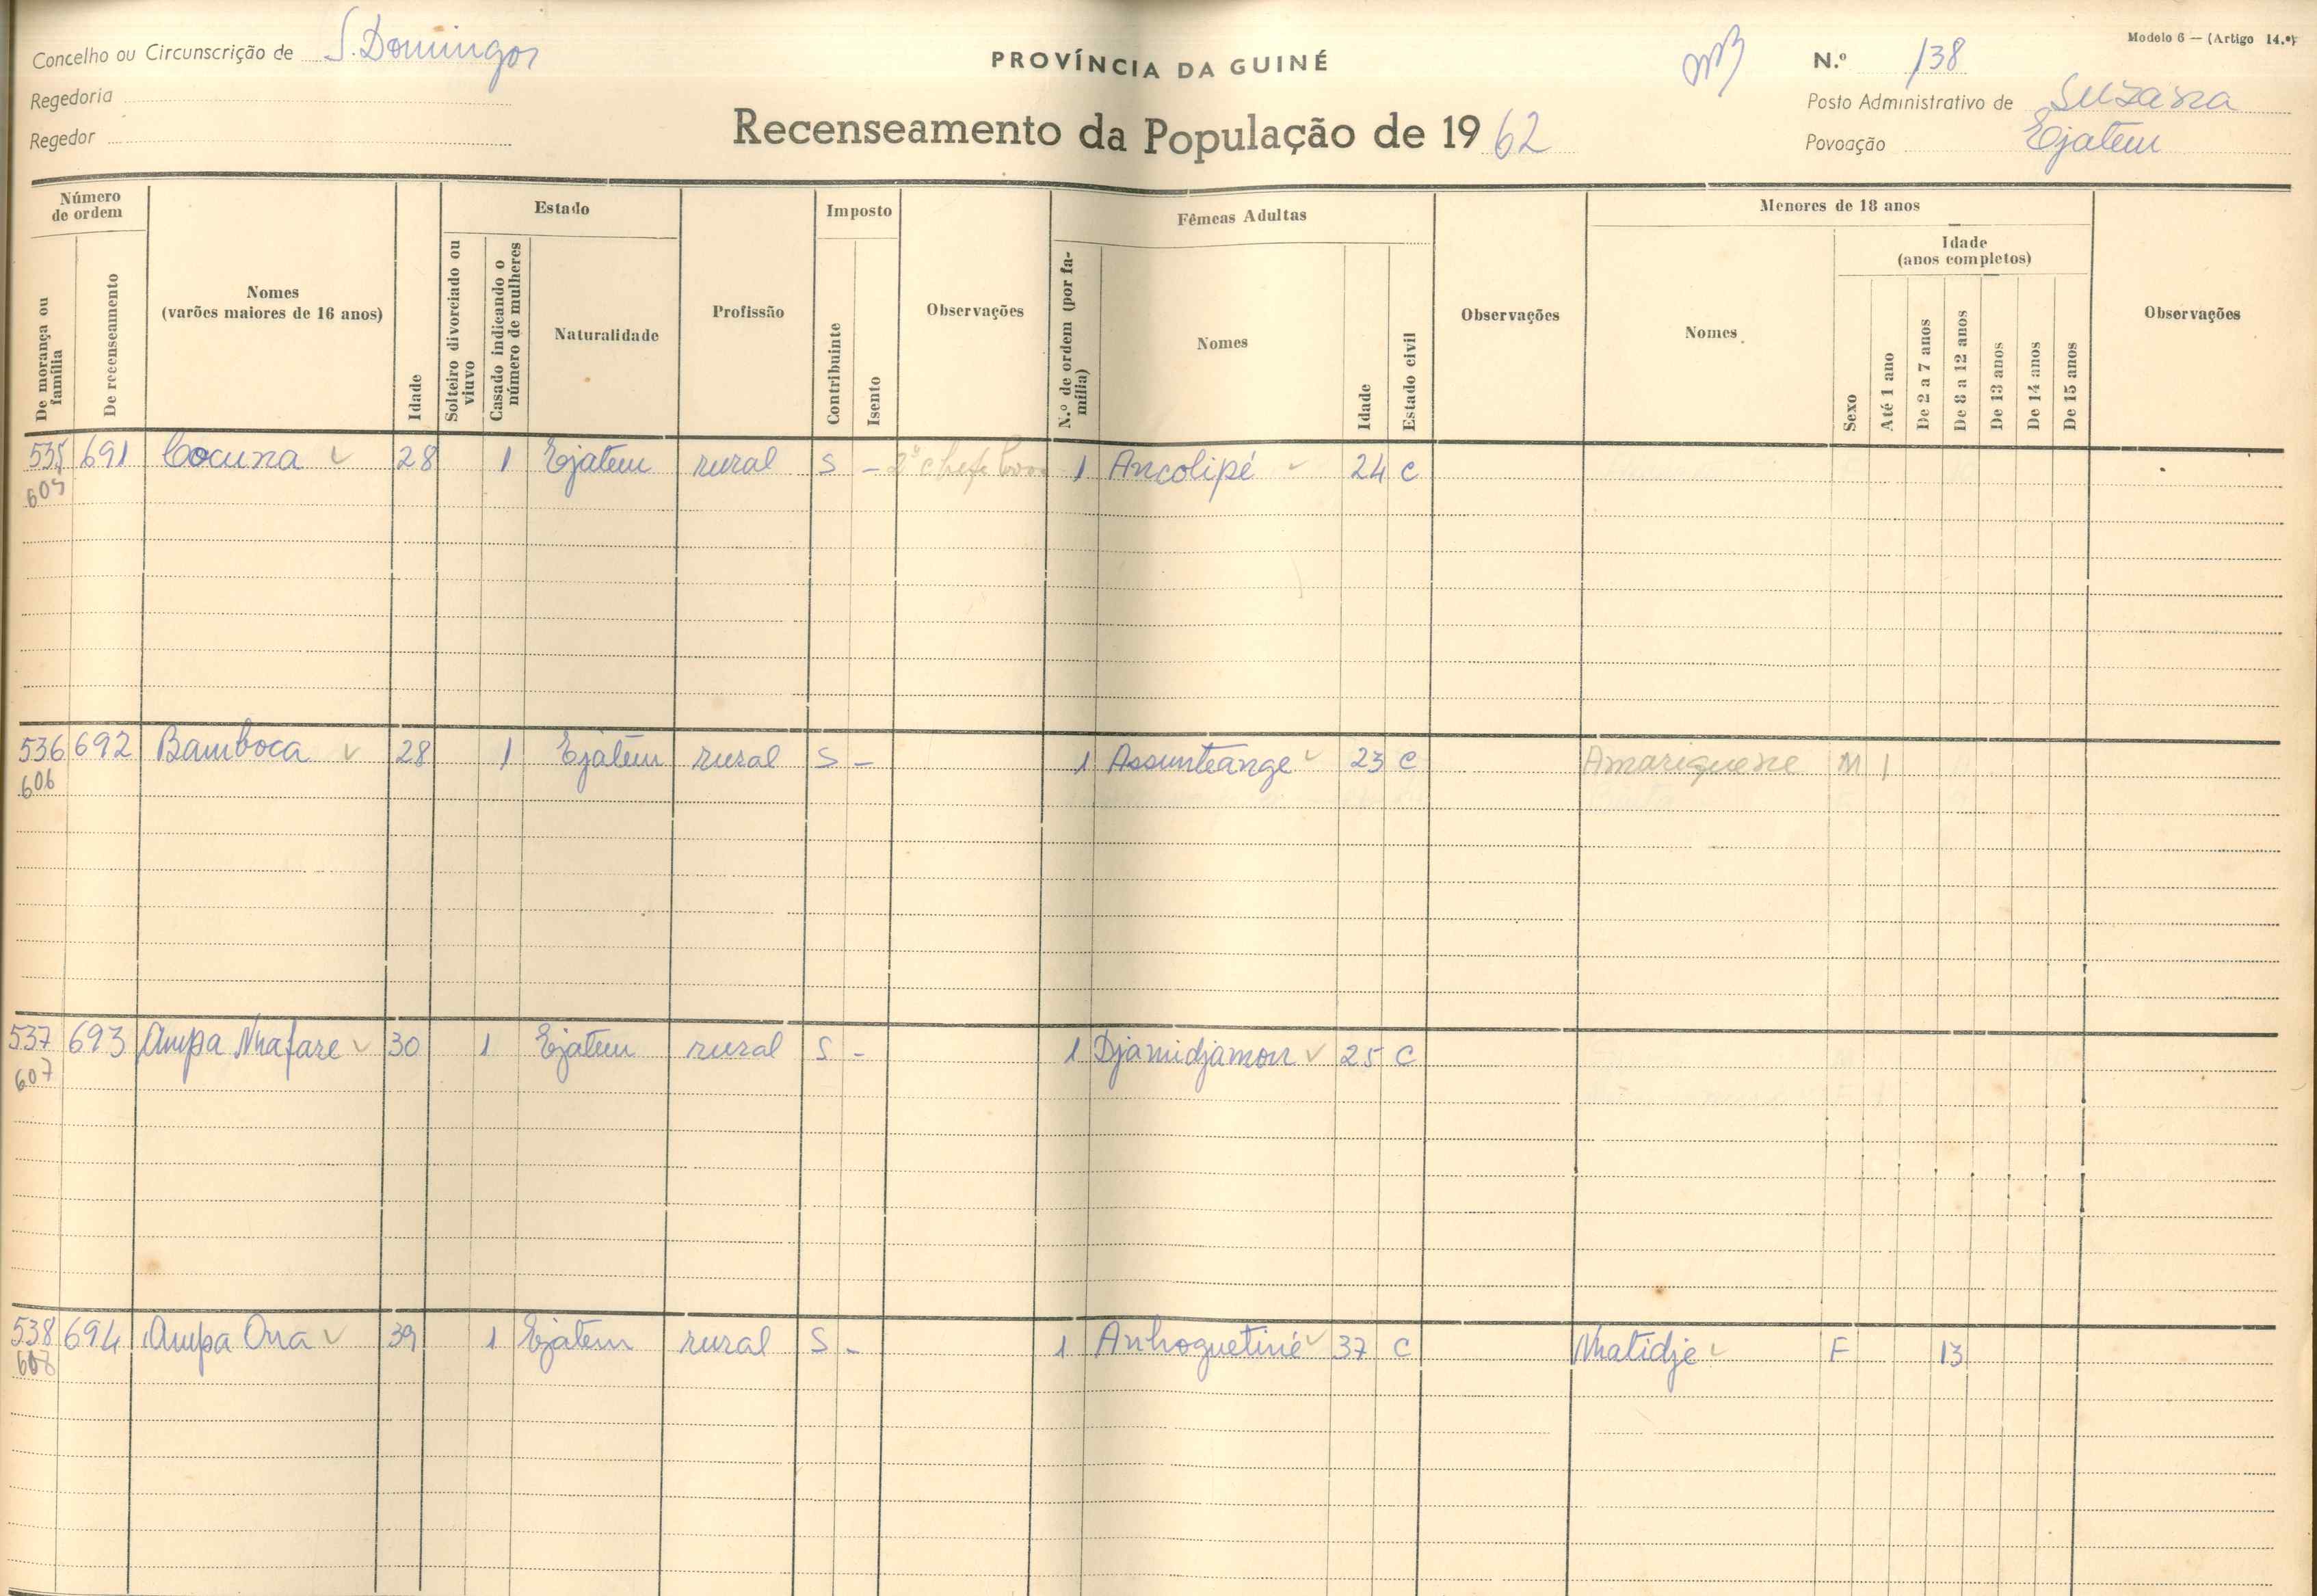 Concelho ou Circunscrição de S. Domingos
Regedoria
Regedor
PROVÍNCIA DA GUINÉ
Recenseamento da População de 1962
Modelo 6 — (Artigo 14.º)
N.º 138
Posto Administrativo de Suzana
Povoação Ejatem
Número de ordem
De morança ou família
De recenseamento
Nomes
(varões maiores de 16 anos)
Idade
Estado
Solteiro divorciado ou viuvo
Casado indicando o número de mulheres
Naturalidade
Profissão
Imposto
Contribuinte
Isento
Observações
Fêmeas Adultas
N.º de ordem (por família)
Nomes
Idade
Estado civil
Observações
Menores de 18 anos
Nomes
Sexo
Idade
(anos completos)
Até 1 ano
De 2 a 7 anos
De 8 a 12 anos
De 13 anos
De 14 anos
De 15 anos
Observações
535 691 Cocuna 28 1 Ejatem rural S - 2º chefe 1 Ancolipé 24 C
605
536 692 Bamboca 28 1 Ejatem rural S - 1 Assunteange 23 C Amariquene M 1
606
537 693 Ampa Nhafare 30 1 Ejatem rural S - 1 Djamidjamon 25 C
607
538 694 Ampa Ona 39 1 Ejatem rural S - 1 Anhoguetiné 37 C Nhatidje F 13
608